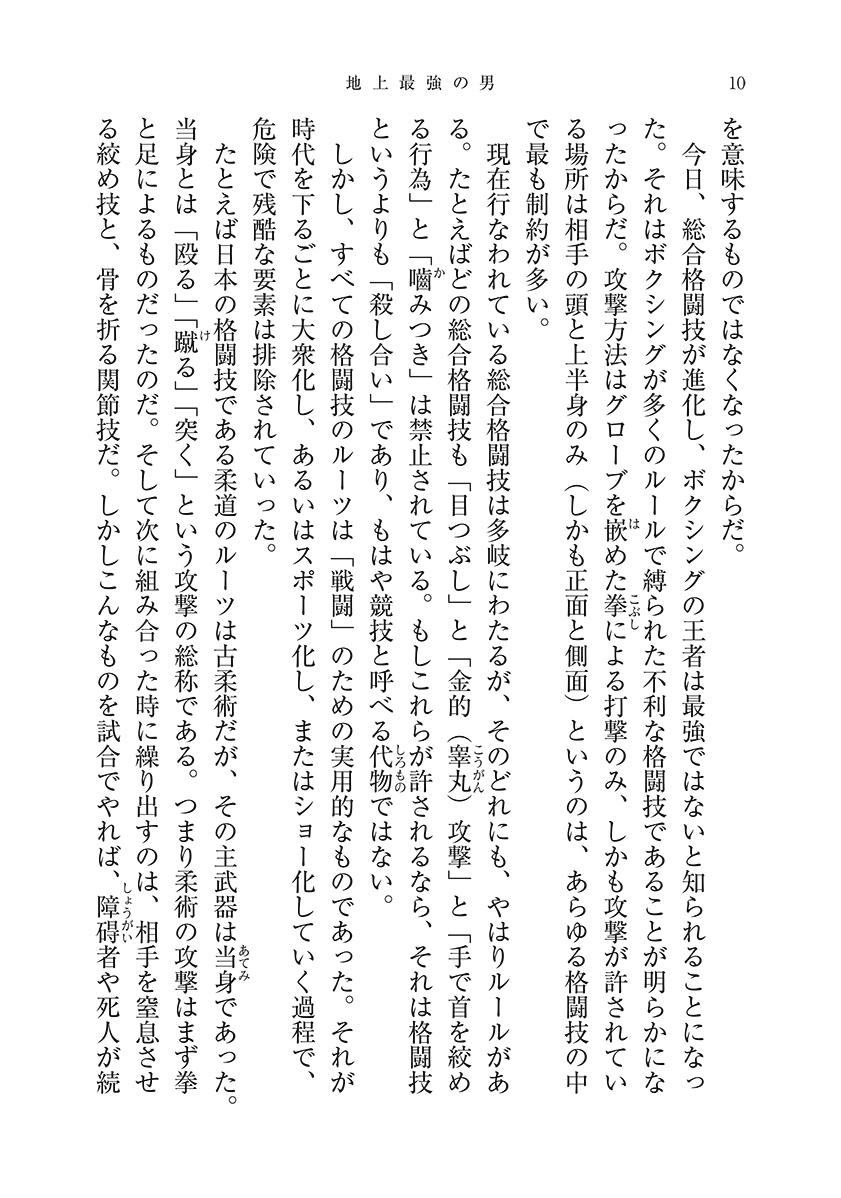 地上最強の男
10
を意味するものではなくなったからだ。
　今日、総合格闘技が進化し、ボクシングの王者は最強ではないと知られることになっ
た。それはボクシングが多くのルールで縛られた不利な格闘技であることが明らかにな
ったからだ。攻撃方法はグローブを嵌めた拳による打撃のみ、しかも攻撃が許されてい
る場所は相手の頭と上半身のみ（しかも正面と側面）というのは、あらゆる格闘技の中
で最も制約が多い。
　現在行なわれている総合格闘技は多岐にわたるが、そのどれにも、やはりルールがあ
る。たとえばどの総合格闘技も「目つぶし」と「金的（睾丸）攻撃」と「手で首を絞め
る行為」と「嚙みつき」は禁止されている。もしこれらが許されるなら、それは格闘技
というよりも「殺し合い」であり、もはや競技と呼べる代物ではない。
　しかし、すべての格闘技のルーツは「戦闘」のための実用的なものであった。それが
時代を下るごとに大衆化し、あるいはスポーツ化し、またはショー化していく過程で、
危険で残酷な要素は排除されていった。
　たとえば日本の格闘技である柔道のルーツは古柔術だが、その主武器は当身であった。
当身とは「殴る」「蹴る」「突く」という攻撃の総称である。つまり柔術の攻撃はまず拳
と足によるものだったのだ。そして次に組み合った時に繰り出すのは、相手を窒息させ
る絞め技と、骨を折る関節技だ。しかしこんなものを試合でやれば、障碍者や死人が続